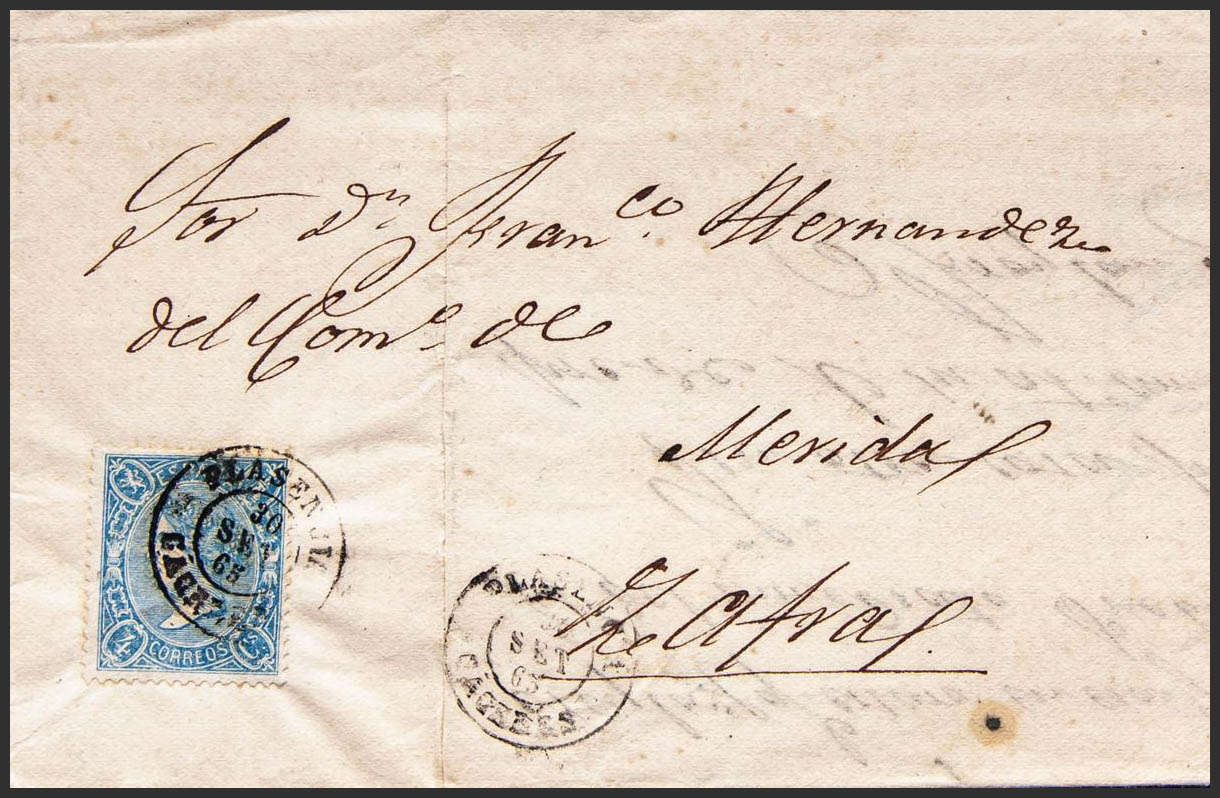 Sor Dn. Franco. Hernandez
del Como. de
Merida
Zafra.
PLASENCIA
30
SET
65
CÁCERES
4 CORREOS Cs
PLASENCIA
30
SET
65
CÁCERES